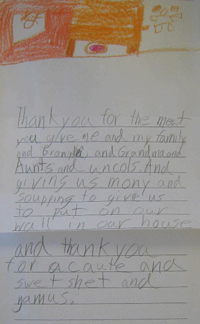 Thank you for the meet
you give me and my family
and Grandpa, and Grandma and
Aunts and uncols. And
giving us mony and
soupping to give us
to put on our
wall in our house
and thank you
for a caute and
swet shet and
gamus.